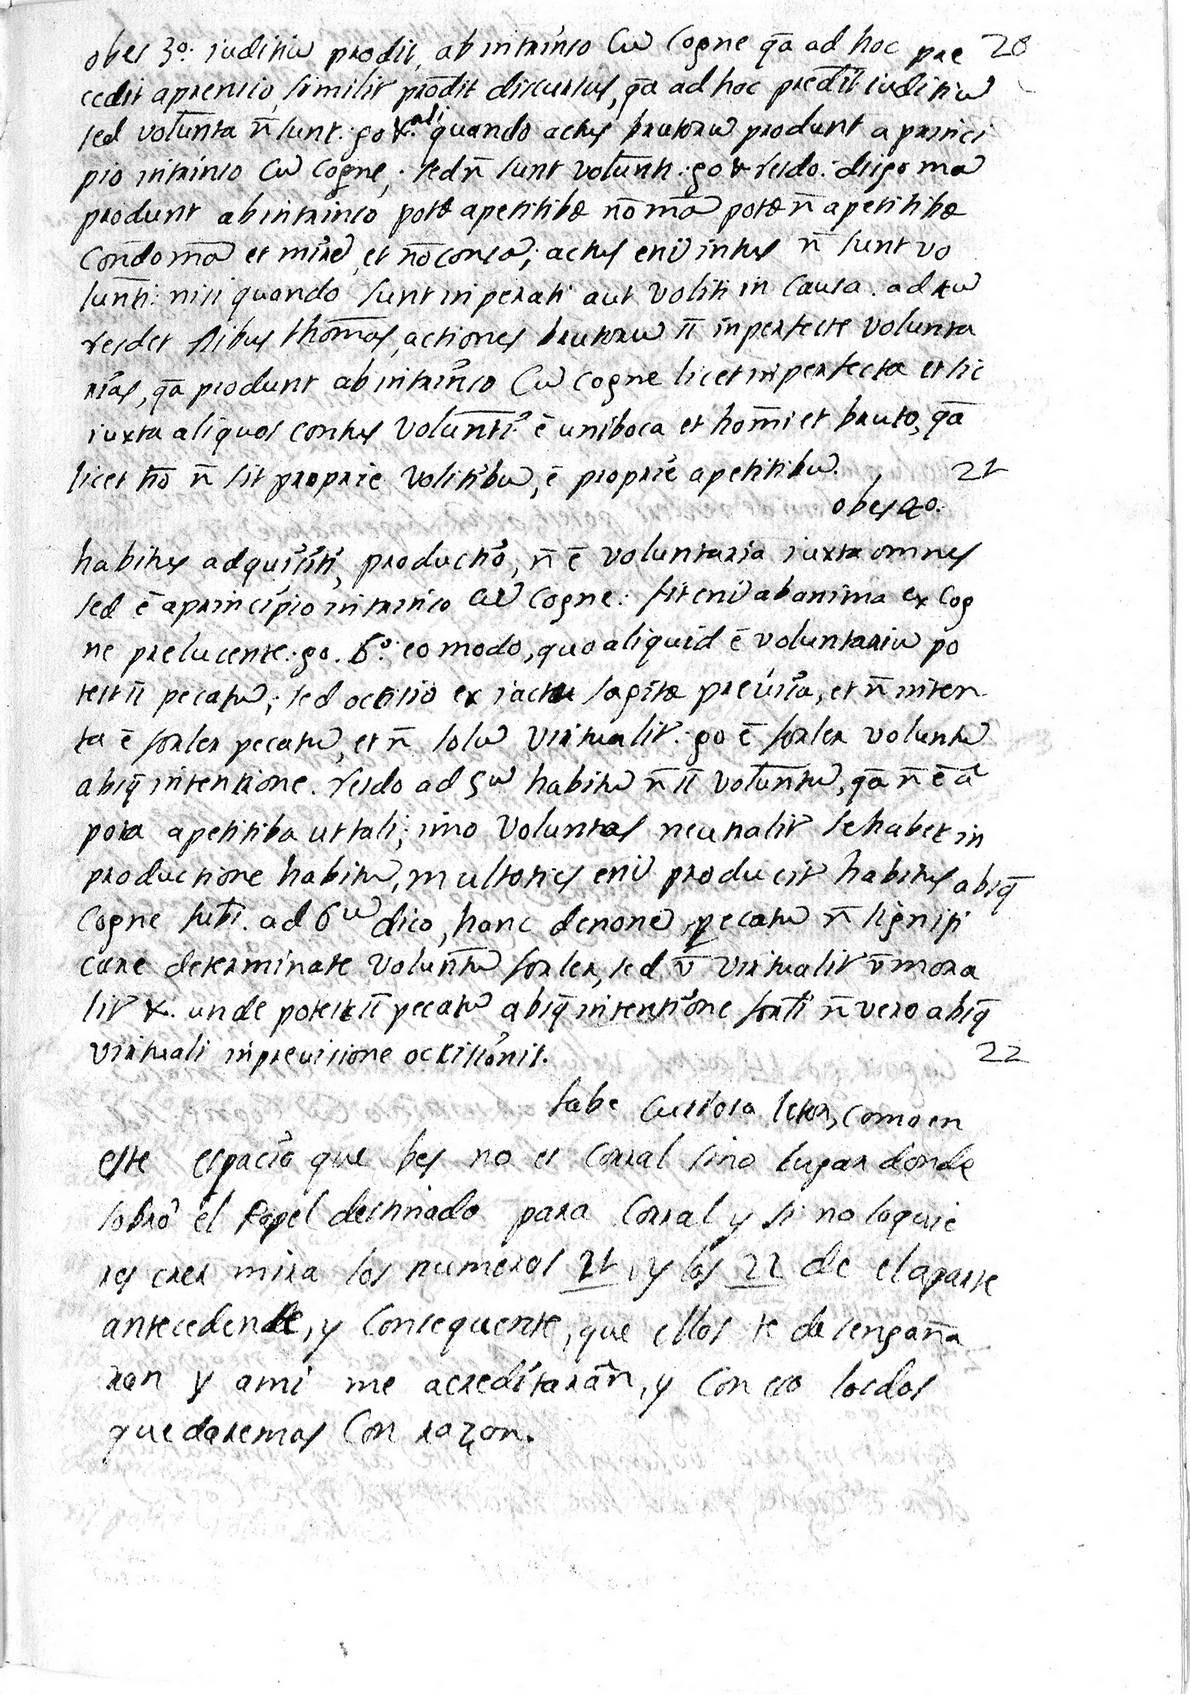 obes 3o. iuditiũ prodit, ab intrinso Cũ Cogne qa ad hoc pre 20
cedit aprensio, similit prodit discursus, qa ad hoc predit iuditiũ
sed volunta ñ sunt. go &. quando actus brutorũ produnt a princi
pio intrinso Cũ Cogne, sed ñ sunt volunti. go & resdo. disgo ma
produnt ab intrinso pota apetitiba no ma pota ñ apetitiba
Condo ma et mire, et no consa; actus eni intus ñ sunt vo
lunti. nisi quando sunt inperati aut voliti in Causa. ad
resdet Thomas, actiones brutorũ inperfecte volunta
rias, qa produnt ab intrinso Cũ Cogne licet inperfecta et sic
iuxta aliquos contus Volunti ē uniboca et homi et bruto, qa
licet ño ñ sit proprie Volitibũ, ē proprie apetitibũ. 21
obes 4o.
habitus adquisiti, productio, ñ ē voluntaria iuxta omnes
sed ē aprincipio intrinso Cũ Cogne: fit eni ab anima ex Cog
ne prelucente. go. 6o. eo modo, quo aliquid ē voluntariũ po
test pecatũ; sed octisio ex iactu sagita previsa, et ñ inten
ta ē forler pecatũ, et ñ solũ virtualit. go ē forler voluntũ
abiq intentione. resdo ad 5ũ habitũ ñ voluntũ, qa ñ ē a
pota apetitiba ut tali; imo Voluntas neutralit se habet in
productione habitũ, multoties eni producit habitus abiq
Cogne subi. ad 6ũ dico, hanc denone pecatũ ñ signifi
care determinate voluntũ forler, sed v virtualit v mora
lit &. unde potest pecatũ abiq intentione forli ñ vero abiq
virtuali inprevisione octisionis. 22
sabe Curiosa letor, como en
este espacio que bes no es Corral sino lugar donde
sobro el Papel destinado para Corral y si no lo quie
res crer mira los numeros 21, y los 22 de el aparte
antecedente, y Consequente, que ellos te desengaña
ran y ami me acreditaran, y con eso los dos
quedaremos Con razon.